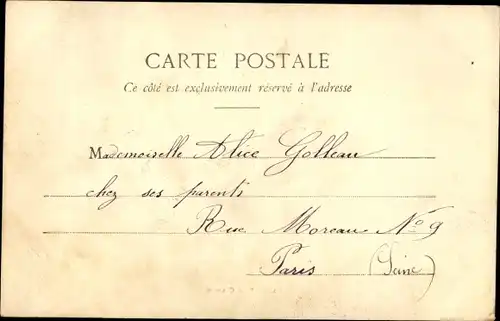 CARTE POSTALE
Ce côté est exclusivement réservé à l'adresse
Mademoiselle Alice Golleau
chez ses parents
Rue Moreau No 9
Paris (Seine)